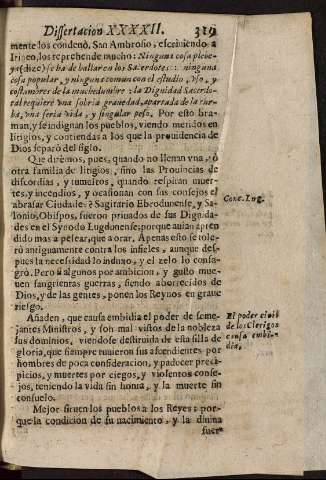 Dissertacion XXXXII. 319
mente los condenò, San Ambrosio, escriviendo a
Irineo, los reprehende mucho: Ninguna cosa plebe-
ya (dize) se ha de hallar en los Sacerdotes: ninguna
cosa popular, y ninguna comun con el estudio, vso, y
costumbres de la muchedumbre: la Dignidad Sacerdo-
tal requiere vna sobria gravedad, apartada de la tur-
ba, vna seria vida, y singular peso. Por esto bra-
man, y se indignan los pueblos, viendo metidos en
litigios, y contiendas a los que la providencia de
Dios separò del siglo.
Que dirèmos, pues, quando no llenan vna, ò
otra familia de litigios, sino las Provincias de
discordias, y tumultos, quando respiran muer-
tes, y incendios, y ocasionan con sus consejos el
abrasar Ciudades? Sagitario Ebrodunense, y Sa-
lonio, Obispos, fueron privados de sus Dignida-
des en el Synodo Lugdonense, porque avian apren
dido mas a pelear, que a orar. Apenas esto se tole-
rò antiguamente contra los infieles, aunque des-
pues la necessidad lo induxo, y el zelo lo consa-
grò. Pero si algunos por ambicion, y gusto mue-
ven sangrientas guerras, siendo aborrecidos de
Dios, y de las gentes, ponen los Reynos en grave
riesgo.
Añaden, que causa embidia el poder de seme-
jantes Ministros, y son mal vistos de la nobleza
sus dominios, viendose destituida de esta silla de
gloria, que siempre tuvieron sus ascendientes por
hombres de poca consideracion, y padecer preci-
picios, y muertes por ciegos, y violentos conse-
jos, teniendo la vida sin honra, y la muerte sin
consuelo.
Mejor sirven los pueblos a los Reyes; por-
que la condicion de su nacimiento, y la divina
suer-
Conc. Lug.
El poder civil
de los Clerigos
causa embi-
dia.